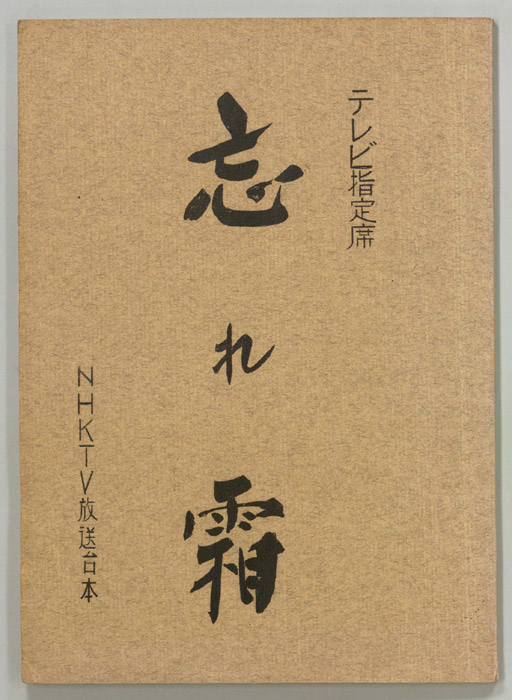 テレビ指定席
忘れ霜
NHKTV放送台本